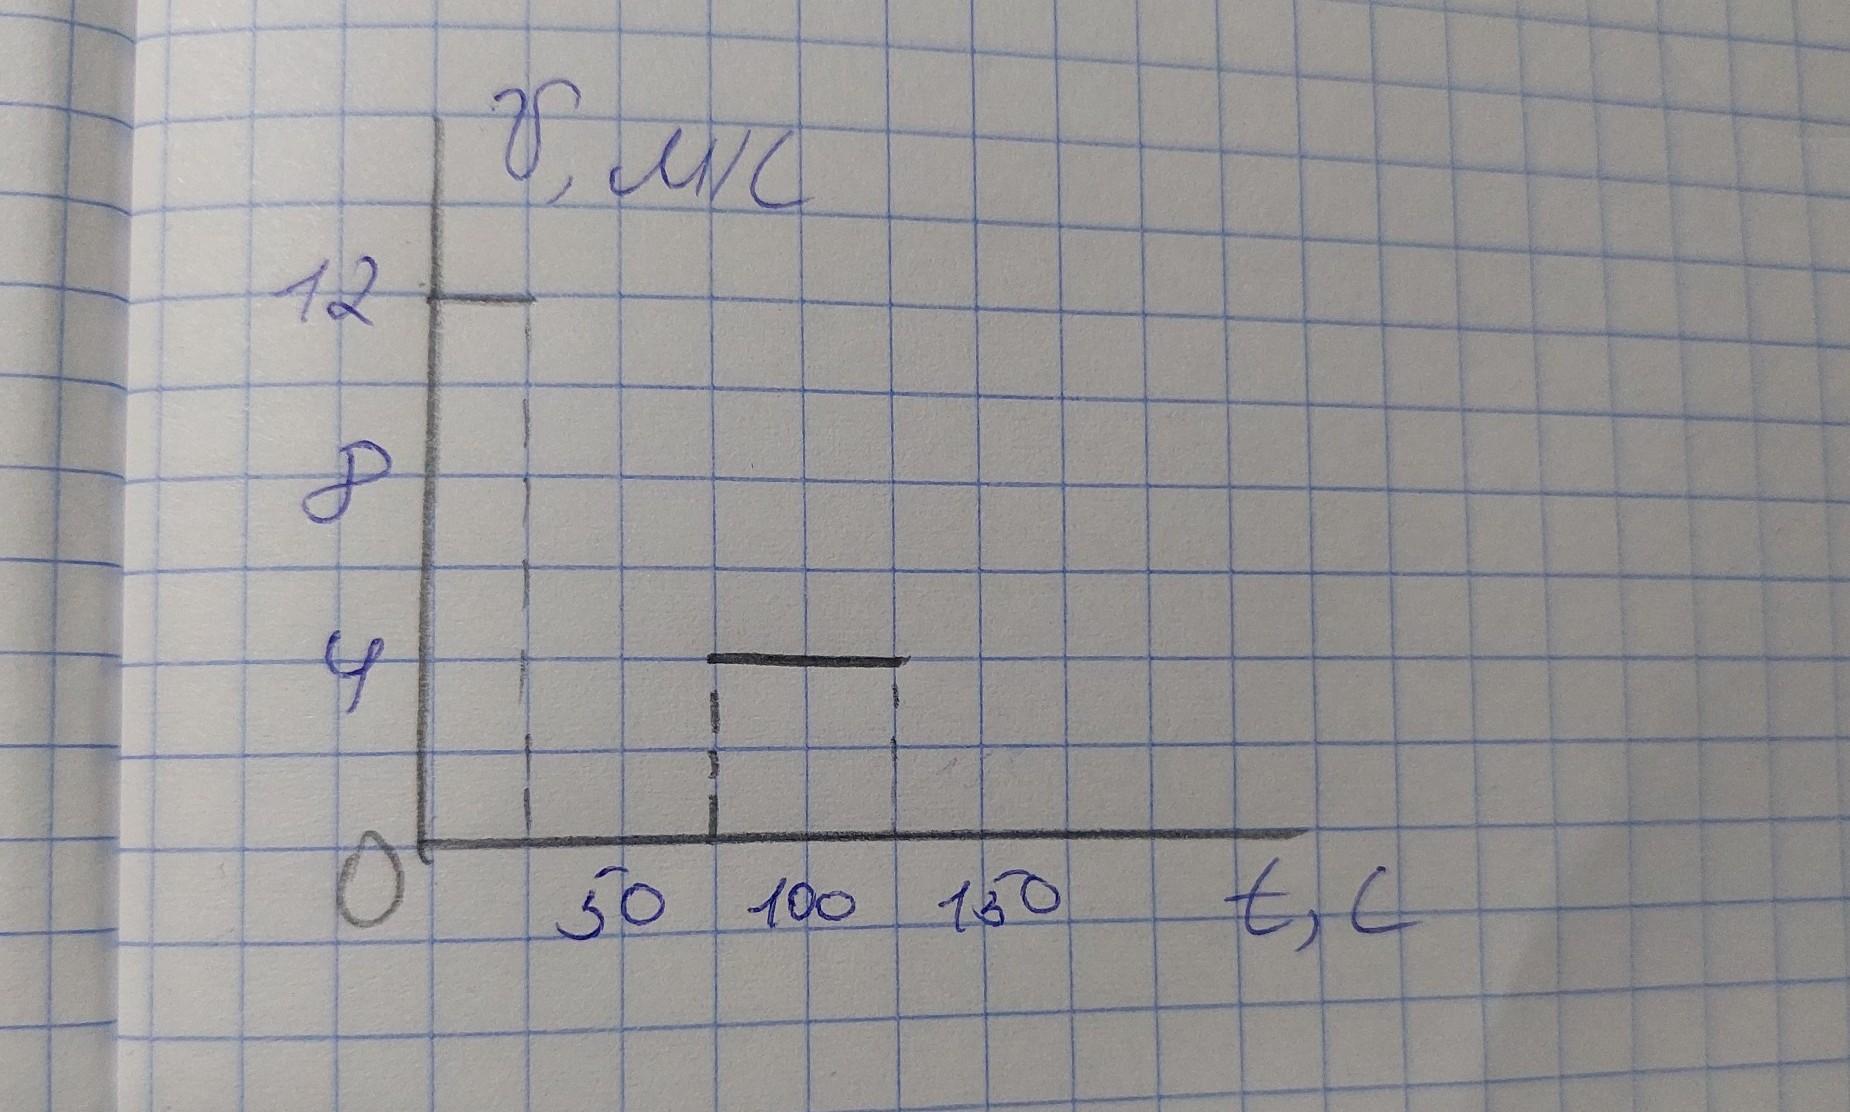 υ, м/с
12
8
4
0
50 100 150 t, с